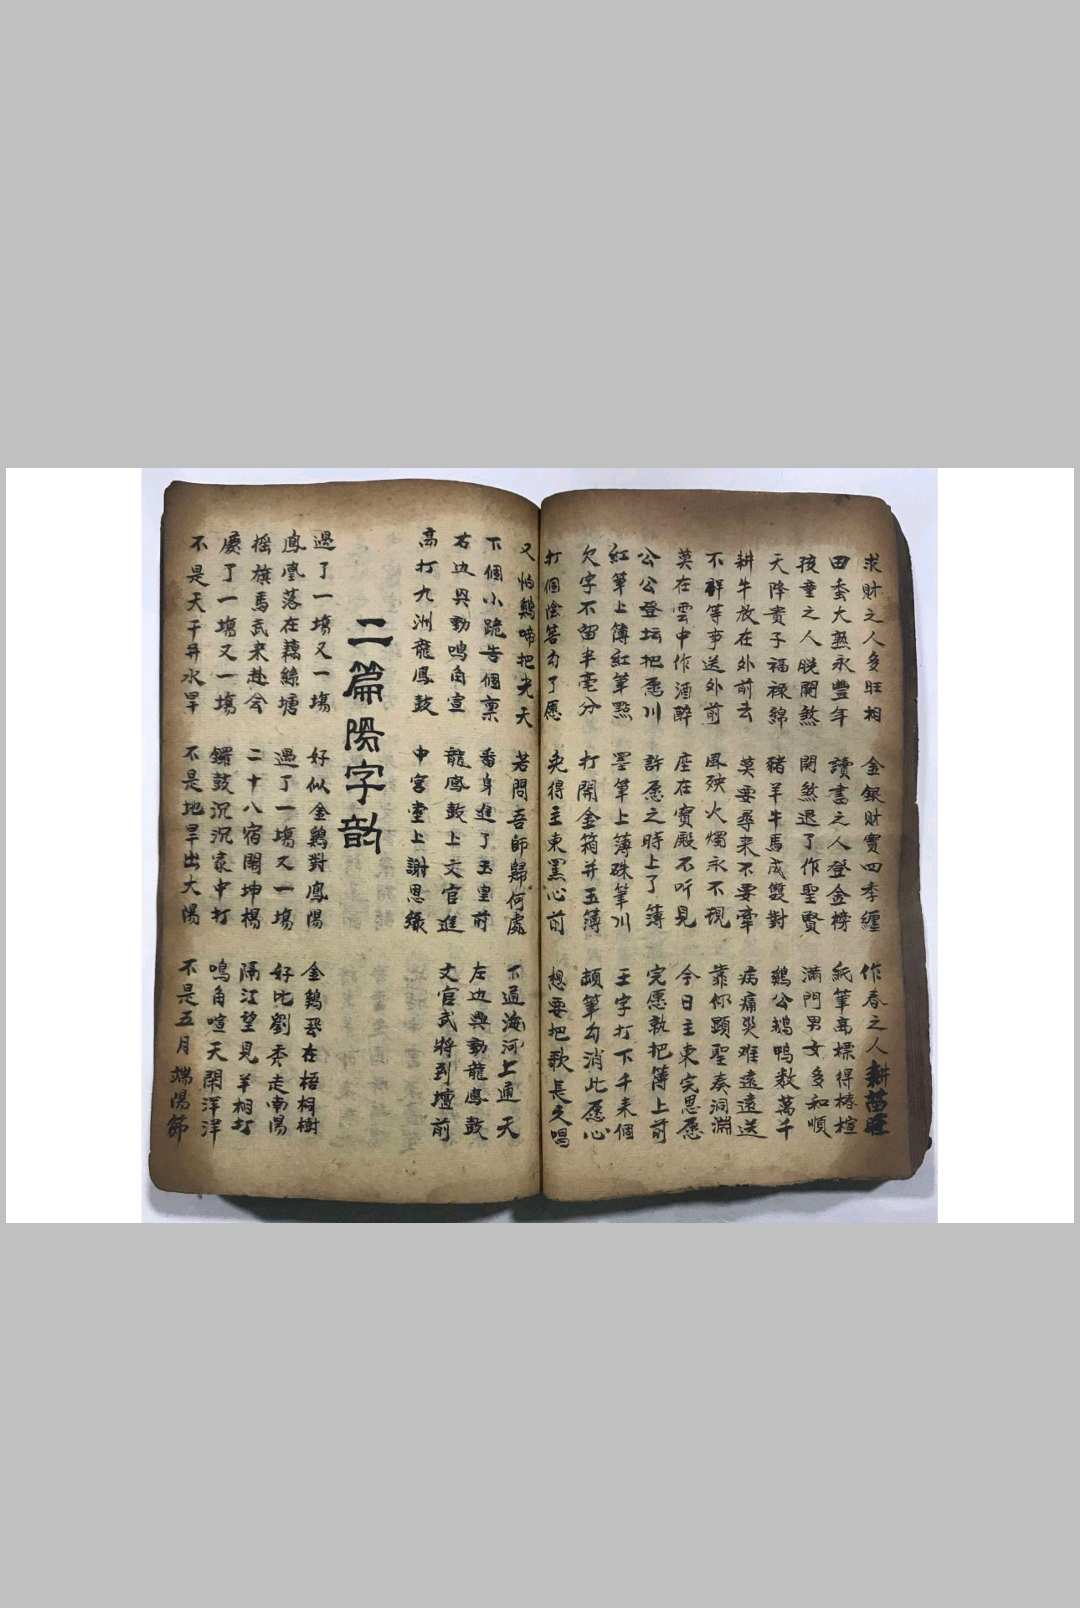 求財之人多旺相 金銀財寶四季纏 作春之人耕苗旺
田蚕大熟永豐年 讀書之人登金榜 紙筆高標得椿楦
孩童之人脱関煞 関煞退了作聖賢 滿門男女多和順
天降貴子福禄綿 豬羊牛馬成雙對 鷄公鵝鴨数萬千
耕牛放在外前去 莫要尋来不要牽 病痛災难遠遠送
不祥等事送外前 風殃火燭永不現 靠你顕聖奏洞淵
莫在雲中作酒醉 座在寳殿不听見 今日主東完恩愿
公公登坛把愿川 許愿之時上了簿 完愿執把簿上前
紅筆上簿紅筆點 墨筆上簿硃筆川 王字打下千来個
欠字不留半毫分 打開金箱并玉簿 頡筆勾消此愿心
打個陰筶勾了愿 免得主東罣心前 想要把歌長久唱
又怕鷄啼把光天 若問吾師歸何處 下通海河上通天
下個小跪告個禀 番身進了玉皇前 左边奥動龍鳳鼓
右边奥動鳴角宣 龍鳳鼓上文官進 文官武將到壇前
高打九洲龍鳳鼓 中宫堂上謝恩緣
二篇陽字韵
過了一塲又一塲 好似金鷄對鳳陽 金鷄飛在梧桐樹
鳳凰落在藕絲塘 過了一塲又一塲 好比劉秀走南陽
摇旗馬武来赴会 二十八宿閙坤楊 隔江望見羊相打
慶了一塲又一塲 鑼鼓沉沉家中打 鳴角喧天閙洋洋
不是天干并水旱 不是地旱出大陽 不是五月端陽節